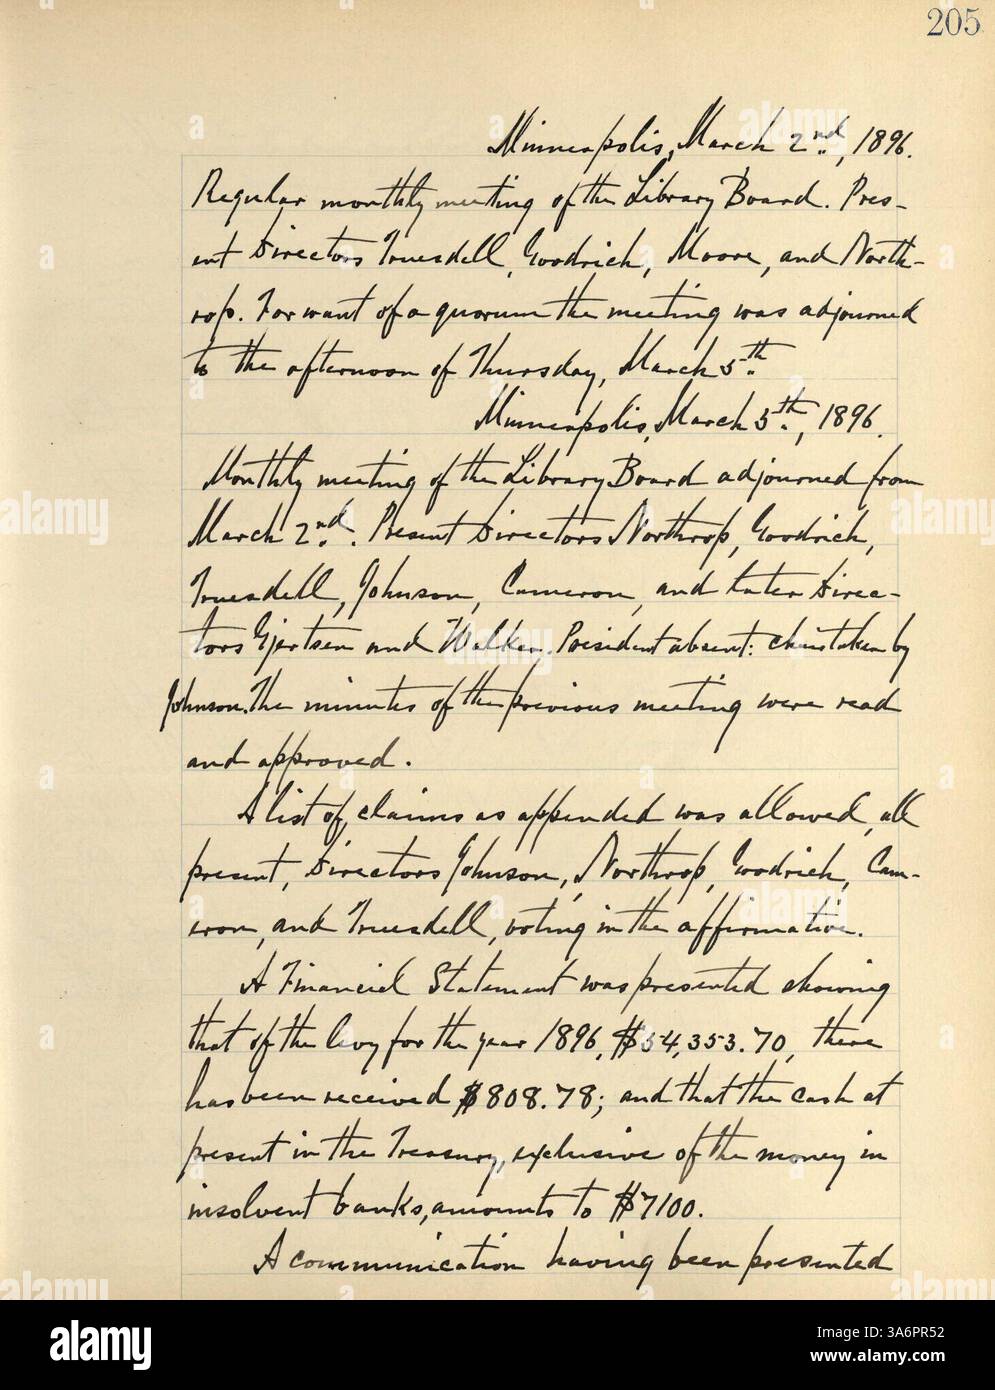 205
Minneapolis, March 2nd, 1896.
Regular monthly meeting of the Library Board. Pres-
ent Directors Truesdell, Goodrich, Moore, and North-
rop. For want of a quorum the meeting was adjourned
to the afternoon of Thursday, March 5th
Minneapolis, March 5th, 1896.
Monthly meeting of the Library Board adjourned from
March 2nd. Present Directors Northrop, Goodrich,
Truesdell, Johnson, Cameron, and later Direc-
tors Gjertsen and Walker. President absent: chair taken by
Johnson. The minutes of the previous meeting were read
and approved.
A list of claims as appended was allowed, all
present, Directors Johnson, Northrop, Goodrich, Cam-
eron, and Truesdell, voting in the affirmative.
A Financial Statement was presented showing
that of the levy for the year 1896, $54,353.70, there
has been received $808.78; and that the cash at
present in the Treasury, exclusive of the money in
insolvent banks, amounts to $7100.
A communication having been presented
alamy
Image ID: 3A6PR52
www.alamy.com